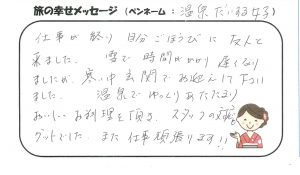 旅の幸せメッセージ (ペンネーム : 温泉だいすき女子)
仕事が終り 自分ごほうびに 友人と
来ました。 雪で時間がかかり 遅くなり
ましたが、寒い中玄関でお迎えして下さい
ました。 温泉でゆっくりあたたまり
おいしいお料理を頂き、スタッフの対応
グットでした。また仕事頑張ります!!